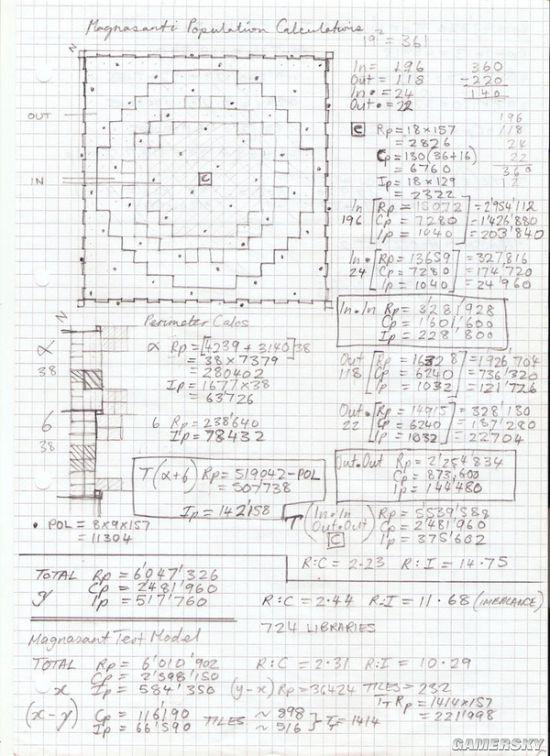 Magnasanti Population Calculations
19² = 361
In = 196
Out = 118
In • = 24
Out • = 22
360
-220
140
196
118
24
22
360
12
OUT
IN
C
N
C Rp = 18 x 157
= 2826
Cp = 130 (36+16)
= 6760
Ip = 18 x 129
= 2322
In 196 [Rp = 15072] = 2'954'112
[Cp = 7280] = 1'426'880
[Ip = 1040] = 203'840
In • 24 [Rp = 13659] = 327'816
[Cp = 7280] = 174'720
[Ip = 1040] = 24'960
In•In Rp = 3'281'928
Cp = 1'601'600
Ip = 228'800
Out 118 [Rp = 16328] = 1'926'704
[Cp = 6240] = 736'320
[Ip = 1032] = 121'776
Out • 22 [Rp = 14915] = 328'130
[Cp = 6240] = 137'280
[Ip = 1032] = 22704
Out•Out Rp = 2'254'834
Cp = 873,600
Ip = 144'480
T (In•In Out•Out) C Rp = 5539'588
Cp = 2'481'960
Ip = 375'602
R:C = 2.23 R:I = 14.75
N
α
38
6
38
Perimeter Calcs
α Rp = [4239 + 3140] 38
= 38 x 7379
= 280402
Ip = 1677 x 38
= 63726
6 Rp = 238'640
Ip = 78432
T(α+6) Rp = 519042 - POL
= 507'738
Ip = 142'158
• POL = 8x9x157
= 11304
TOTAL Rp = 6'047'326
y Cp = 2'481'960
Ip = 517'760
R:C = 2.44 R:I = 11.68 (IMBALANCE)
724 LIBRARIES
Magnasanti Test Model
TOTAL Rp = 6'010'902 R:C = 2.31 R:I = 10.29
x Cp = 2'598'150
Ip = 584'350 (y-x) Rp = 36424 TILES = 232
(x-y) Cp = 116'190 TILES ~ 898
Ip = 66'590 ~ 516 } T = 1414
T Rp = 1414x157
= 221'998
GAMERSKY